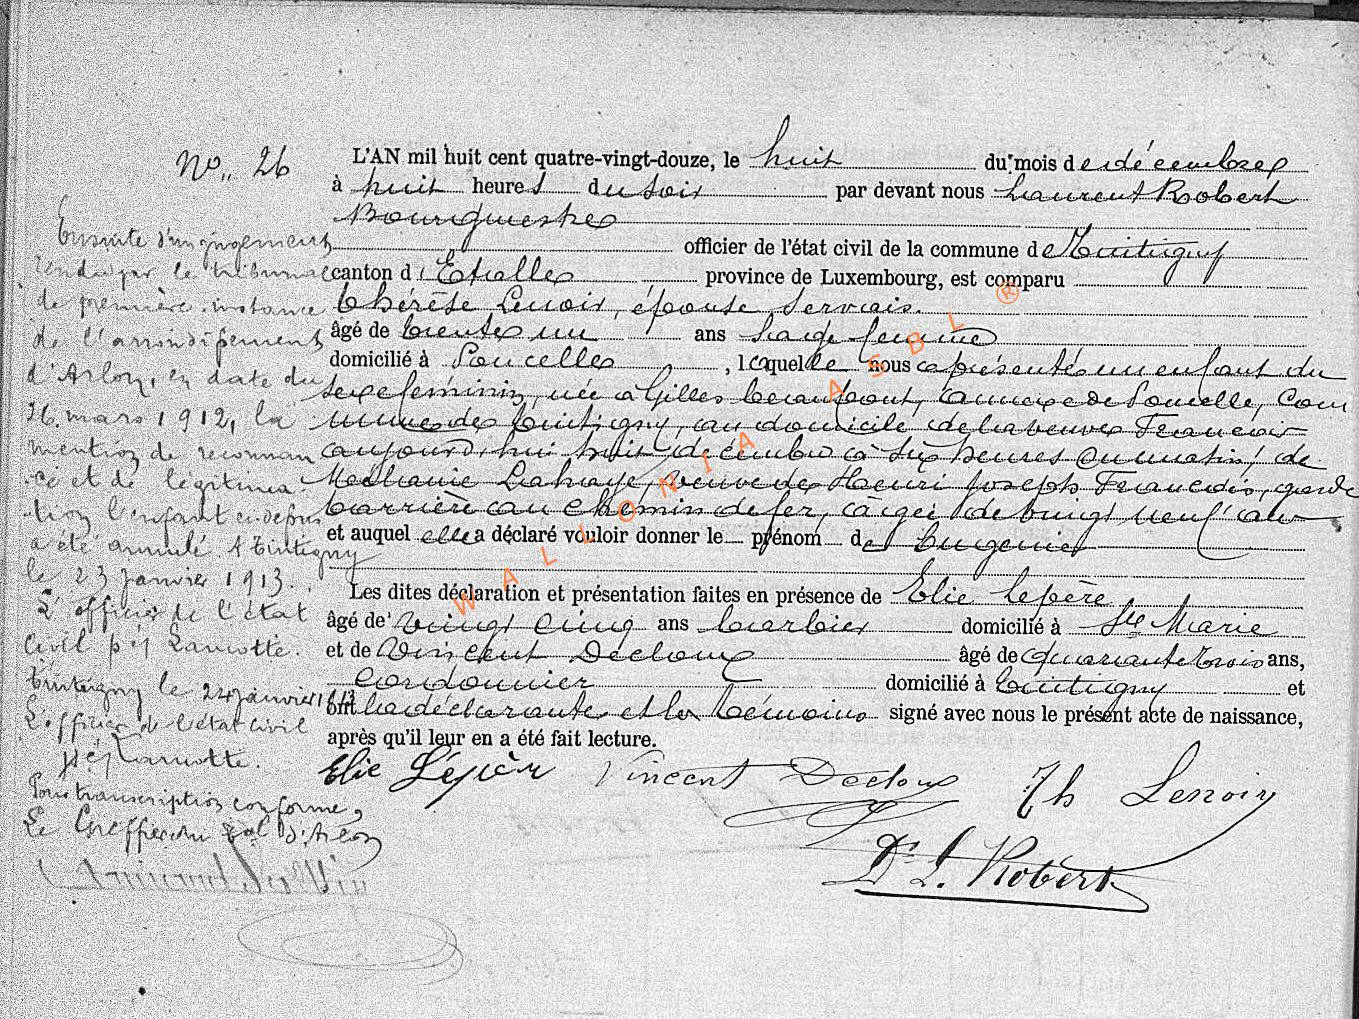 No. 26
L'AN mil huit cent quatre-vingt-douze, le huit du mois de décembre
à huit heures du soir par devant nous Laurent Robert
Bourgmestre
officier de l'état civil de la commune de Tintigny
canton d'Etalle province de Luxembourg, est comparu
Thérèse Lenoir, épouse Servais.
âgé de trente un ans sage femme
domicilié à Poncelle, laquelle nous a présenté un enfant du
sexe féminin, née à Gilles Beaufont, annexe de Poncelle, Com
mune de Tintigny, au domicile de la veuve Francois
aujourd'hui huit décembre à six heures du matin, de
Mélhanie Lahaye, veuve de Henri Joseph Francois, garde
barrière au chemin de fer, âgée de vingt neuf ans
et auquel elle a déclaré vouloir donner le prénom de Eugenie
Les dites déclaration et présentation faites en présence de Elie Lepère
âgé de vingt cinq ans barbier domicilié à Ste Marie
et de Vincent Decloux âgé de quarante trois ans,
cordonnier domicilié à Tintigny et
ont la déclarante et les témoins signé avec nous le présent acte de naissance,
après qu'il leur en a été fait lecture.
Elie Lépère Vincent Decloux Th Lenoir
Dr L. Robert
Ensuite d'un jugement
rendu par le tribunal
de première instance
de l'arrondissement
d'Arlon, en date du
26 mars 1912, la
mention de reconnan
ce et de légitima
tion l'enfant ci-dessus
a été annulé. Tintigny
le 23 janvier 1913.
L'officier de l'état
civil p/s/ Lamotte.
Tintigny le 24 janvier 1913
L'officier de l'état civil
p/s/ Lamotte.
Pour transcription conforme,
Le Greffier du bal d'Arlon
WALLONIA ASBL ®